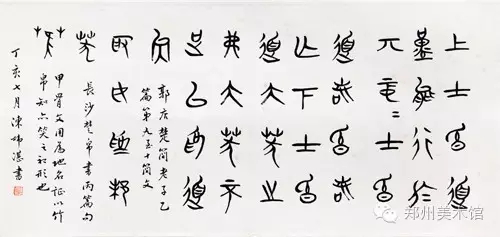 上士昏道
堇能行於
丌中=士昏
道若昏若
亡下士昏
道大芺之
弗大芺不
足以為道
矣
郭店楚簡老子乙
篇第九至十簡文
取女為邦
芺
長沙楚帛書丙篇句
甲骨文用為地名證以竹
帛知亦笑之初形也
丁亥七月陳煒湛書
郑州美术馆